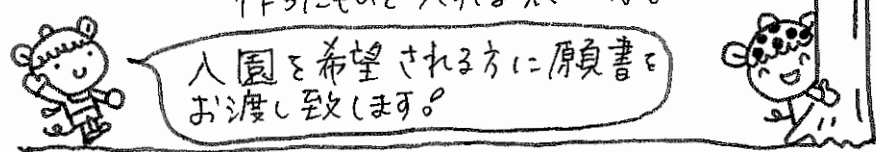 入園を希望される方に願書を
お渡し致します。